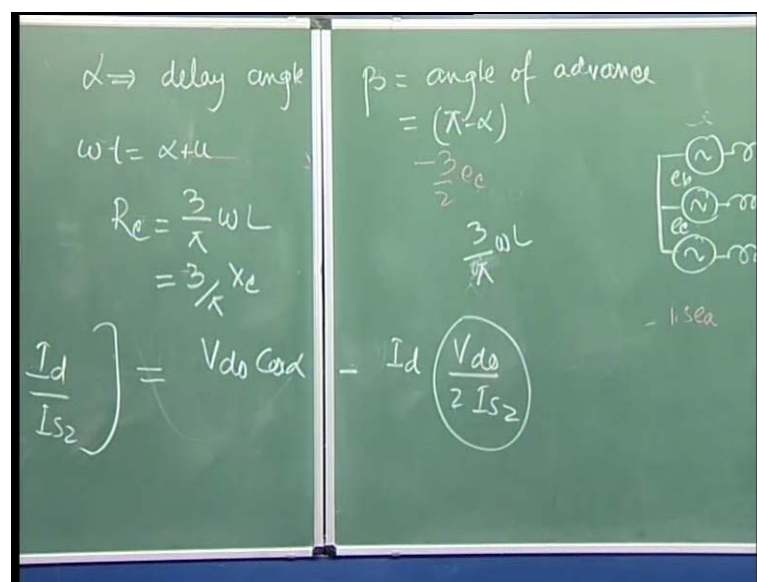 α ⇒ delay angle
ωt = α+u
Rc = 3/π ωL
= 3/π Xc
Id/Is2 ] = Vdo Cosα - Id (Vdo / 2 Is2)
β = angle of advance
= (π-α)
-3/2 ec
3/π ωL
eb
ec
- 1.5ea